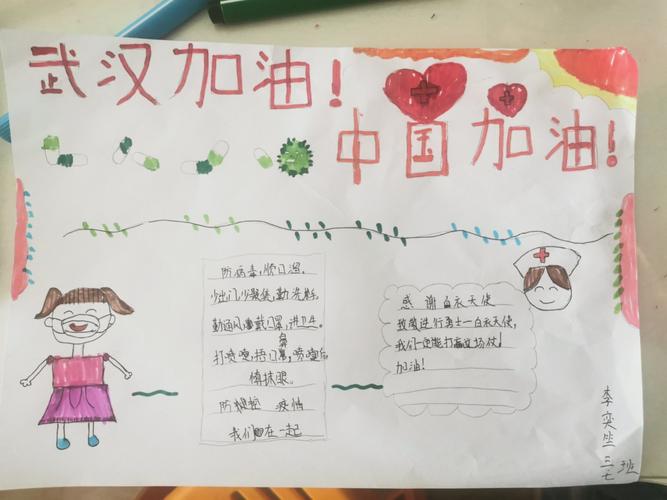 武汉加油！
中国加油！
防病毒，
少出门，少聚集，勤洗
勤通风，戴口罩，讲卫生。
打喷嚏，捂口鼻，喷嚏后
慎揉眼。
防 控 疫情
我们在一起
感谢白衣天使
致敬逆行勇士—白衣天使，
我们一定能打赢这场仗！
加油！
李奕 三七班